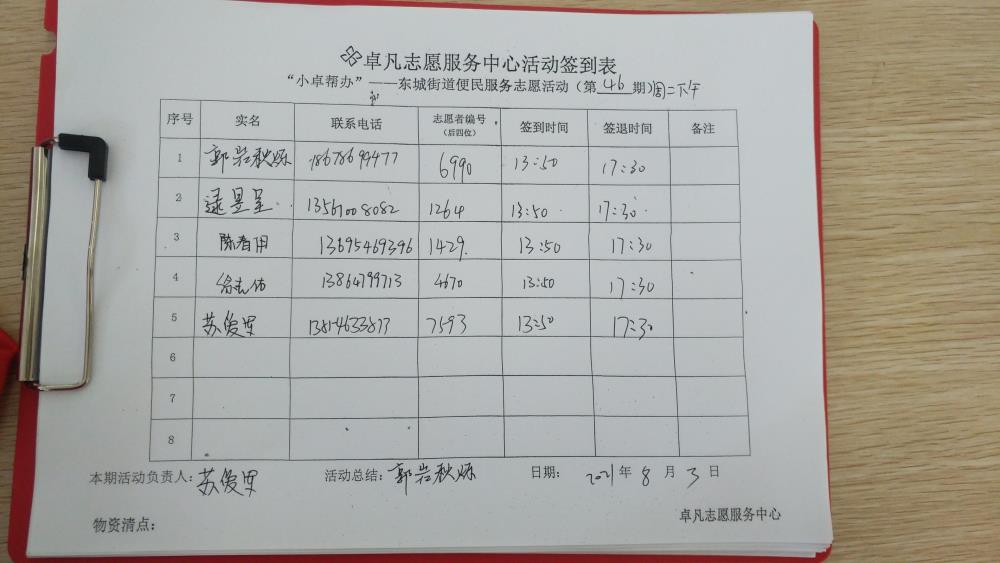 卓凡志愿服务中心活动签到表
“小卓帮办”——东城街道便民服务志愿活动（第46期）周二下午
序号 实名 联系电话 志愿者编号（后四位） 签到时间 签退时间 备注
1 郭岩秋烁 18678699477 6990 13:50 17:30
2 逯昱呈 13561008082 1264 13:50 17:30
3 陈春用 13695469396 1429 13:50 17:30
4 13864799713 4670 13:50 17:30
5 苏俊军 7593 13:50 17:30
6
7
8
本期活动负责人：苏俊军 活动总结：郭岩秋烁 日期：2021年8月3日
物资清点：
卓凡志愿服务中心